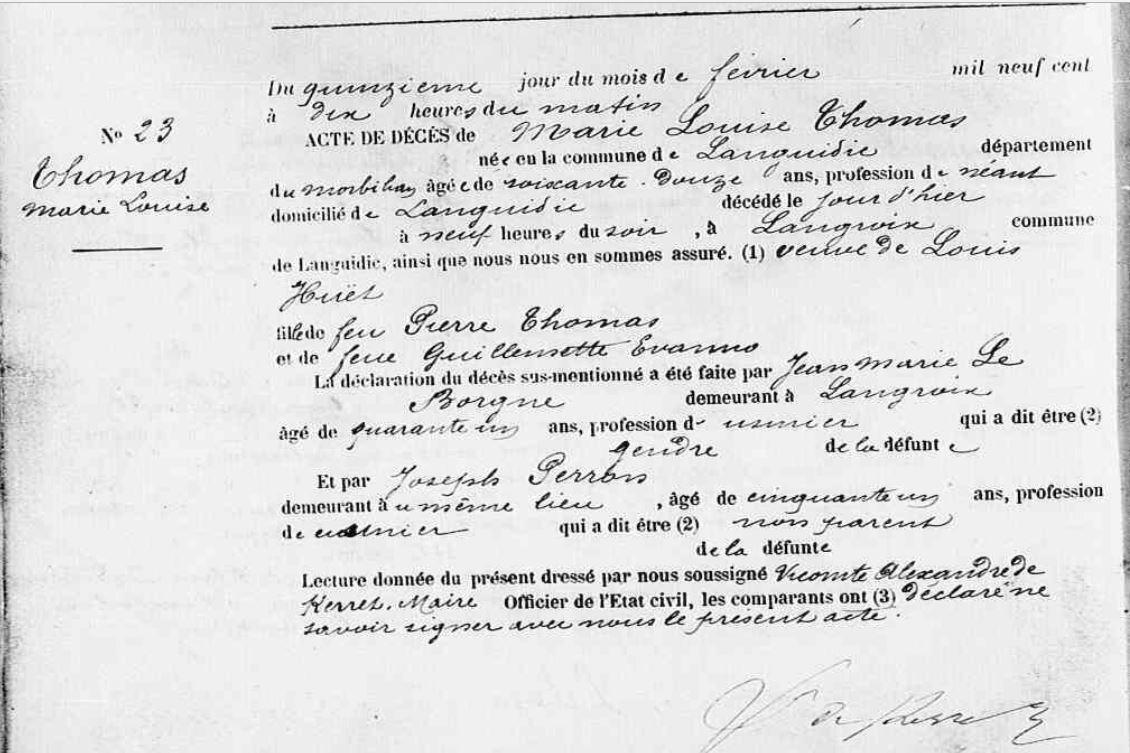 Du quinzième jour du mois de février mil neuf cent
à dix heures du matin
Nº 23
ACTE DE DÉCÈS de Marie Louise Thomas
Thomas
née en la commune de Languidic département
Marie Louise
du Morbihan âgée de soixante-douze ans, profession de néant
domicilié de Languidic décédé le jour d'hier
à neuf heures du soir, à Langroix commune
de Languidic, ainsi que nous nous en sommes assuré. (1) veuve de Louis
Huët
fille de feu Pierre Thomas
et de feue Guillemette Evanno
La déclaration du décès sus-mentionné a été faite par Jean Marie Le
Borgne demeurant à Langroix
âgé de quarante un ans, profession d' usinier qui a dit être (2)
gendre de la défunte
Et par Joseph Perron
demeurant au même lieu, âgé de cinquante un ans, profession
de usinier qui a dit être (2) non parent
de la défunte
Lecture donnée du présent dressé par nous soussigné Vicomte Alexandre de
Kerret, Maire Officier de l'Etat civil, les comparants ont (3) déclaré ne
savoir signer avec nous le présent acte.
Vte de Kerret